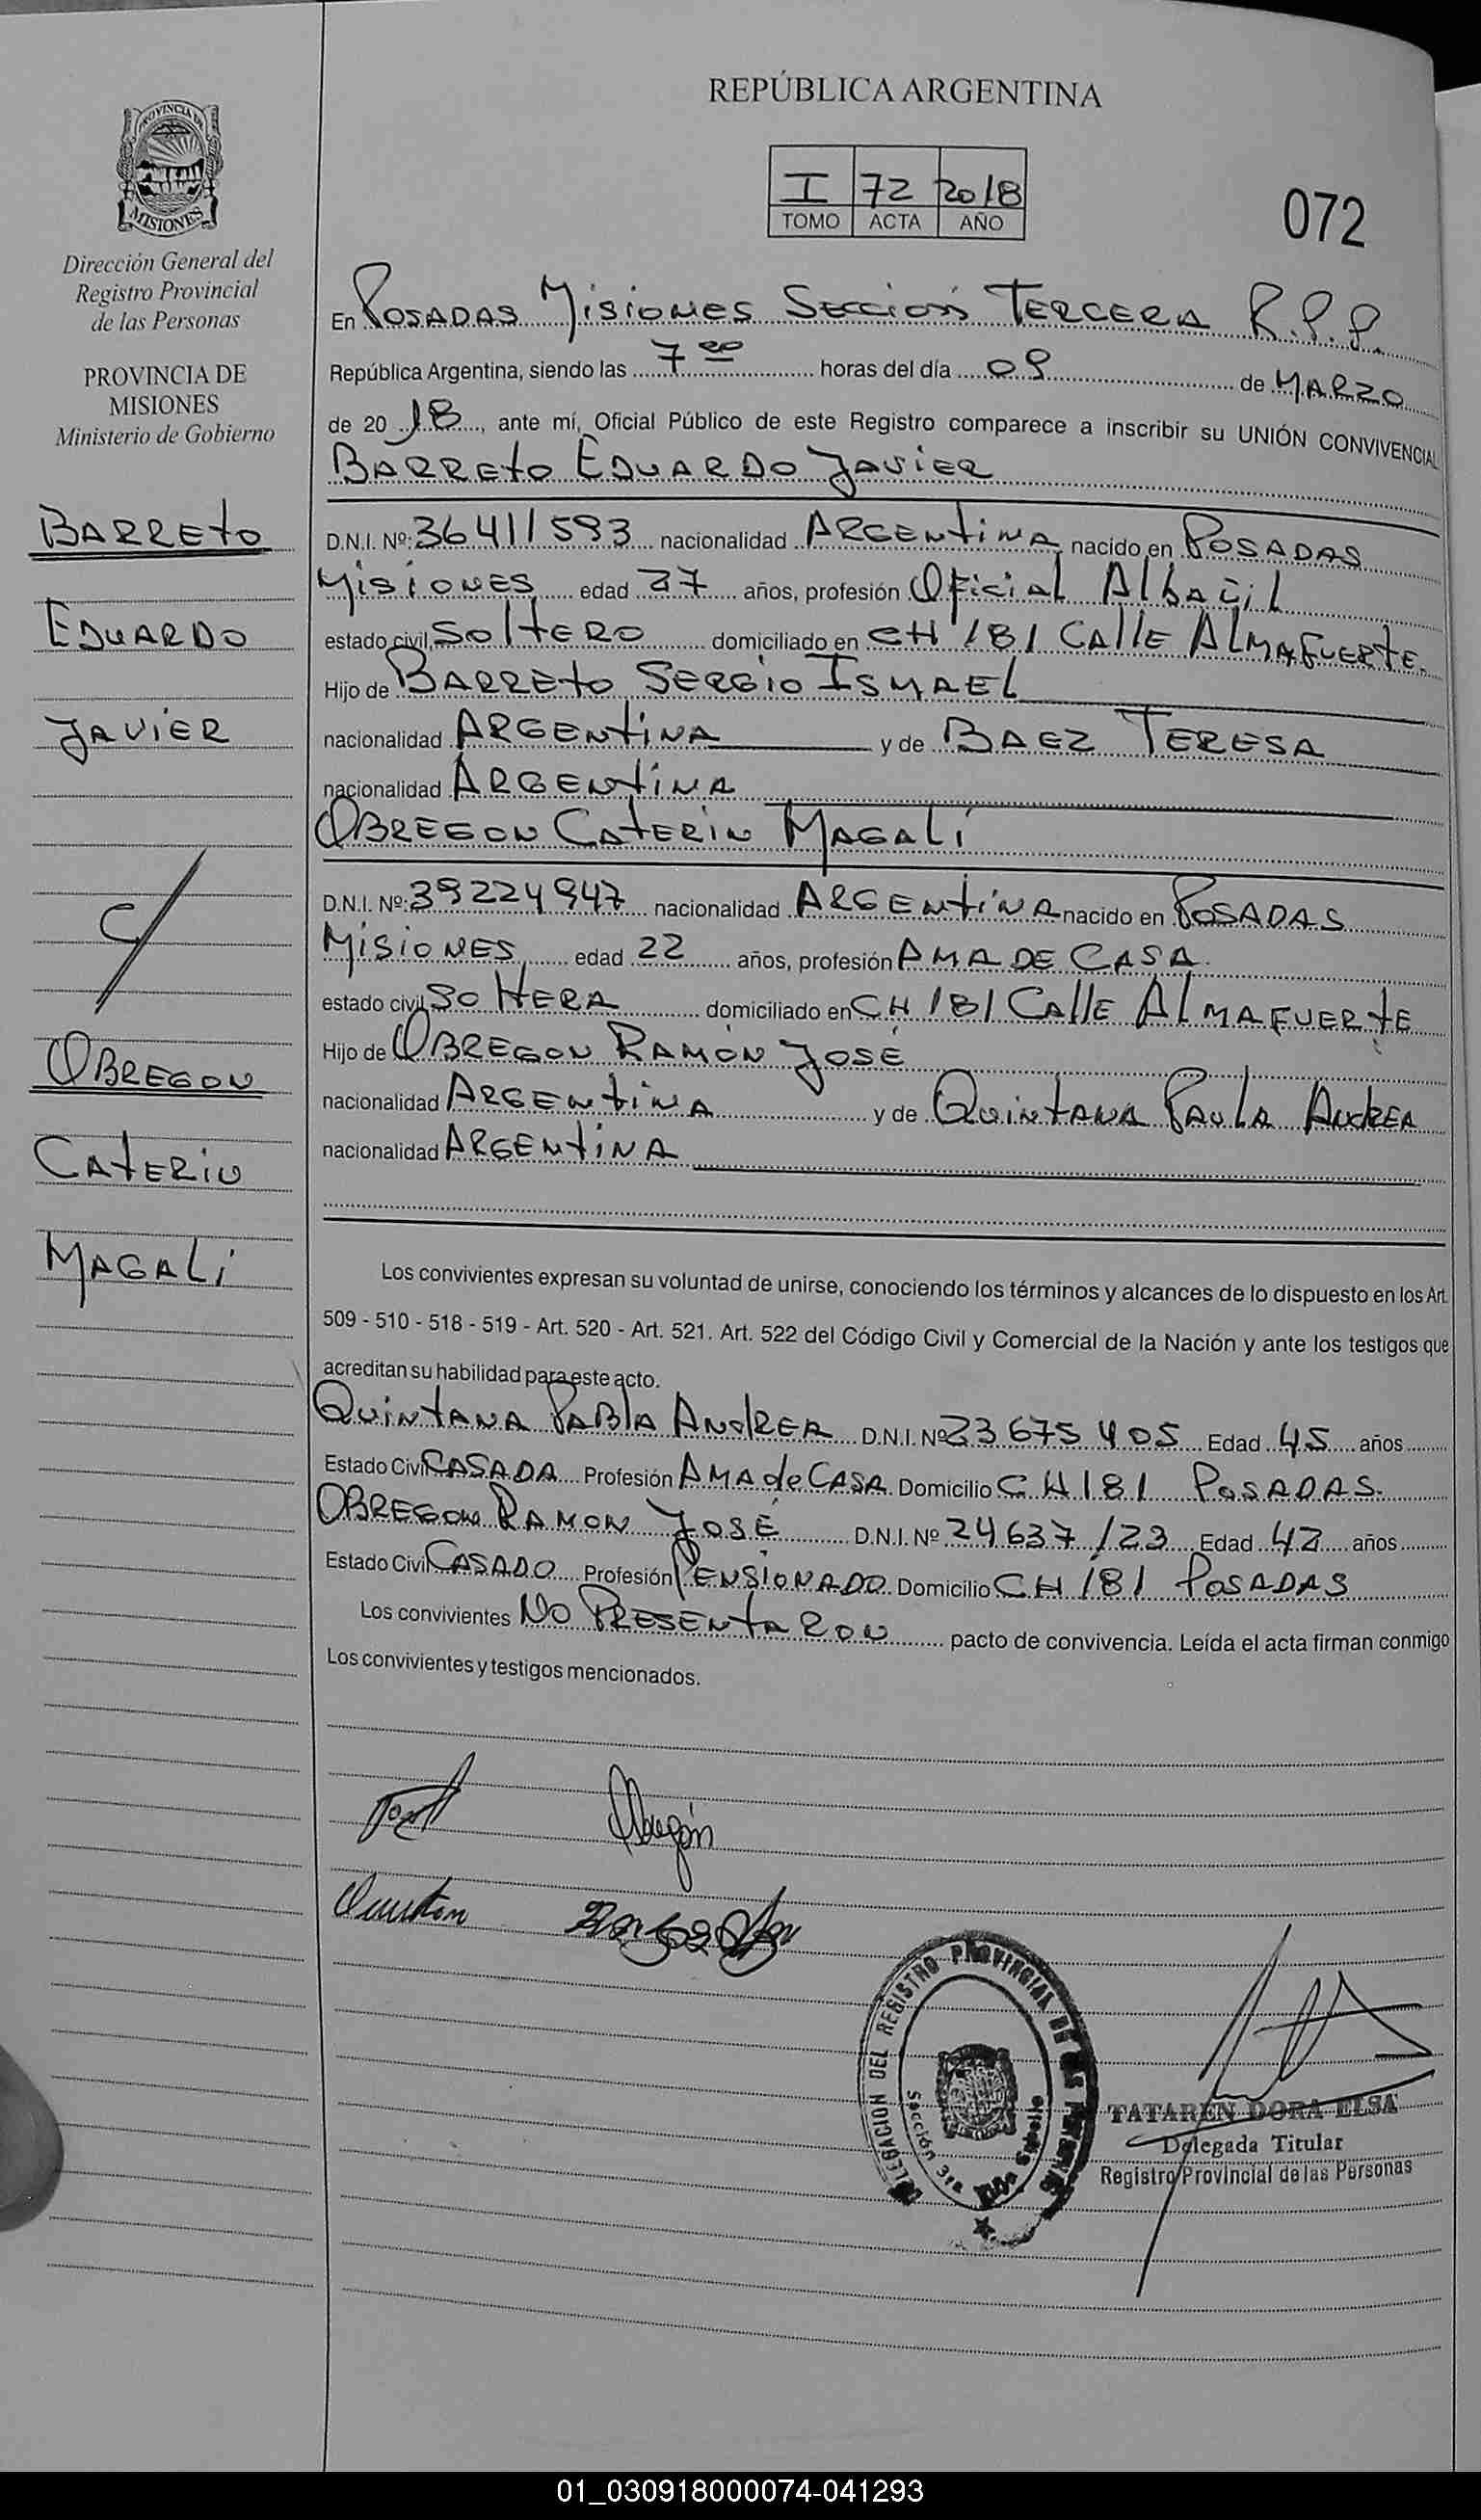 REPÚBLICA ARGENTINA
I 72 2018
TOMO ACTA AÑO
072
PROVINCIA DE
MISIONES
Dirección General del
Registro Provincial
de las Personas
PROVINCIA DE
MISIONES
Ministerio de Gobierno
BARRETO
EDUARDO
JAVIER
C/
OBREGON
CATERIN
MAGALI
En POSADAS MISIONES SECCIÓN TERCERA R.P.P.
República Argentina, siendo las 7 00 horas del día 09 de MARZO
de 20 18, ante mí, Oficial Público de este Registro comparece a inscribir su UNIÓN CONVIVENCIAL
BARRETO EDUARDO JAVIER
D.N.I. Nº: 36411593 nacionalidad ARGENTINA nacido en POSADAS
MISIONES edad 27 años, profesión OFICIAL ALBAÑIL
estado civil SOLTERO domiciliado en CH 181 CALLE ALMAFUERTE
Hijo de BARRETO SERGIO ISMAEL
nacionalidad ARGENTINA y de BAEZ TERESA
nacionalidad ARGENTINA
OBREGON CATERIN MAGALI
D.N.I. Nº: 39224947 nacionalidad ARGENTINA nacido en POSADAS
MISIONES edad 22 años, profesión AMA DE CASA
estado civil SOLTERA domiciliado en CH 181 CALLE ALMAFUERTE
Hijo de OBREGON RAMÓN JOSÉ
nacionalidad ARGENTINA y de QUINTANA PAULA ANDREA
nacionalidad ARGENTINA
Los convivientes expresan su voluntad de unirse, conociendo los términos y alcances de lo dispuesto en los Art.
509 - 510 - 518 - 519 - Art. 520 - Art. 521. Art. 522 del Código Civil y Comercial de la Nación y ante los testigos que
acreditan su habilidad para este acto.
QUINTANA PABLA ANDREA D.N.I. Nº 23675405 Edad 45 años
Estado Civil CASADA Profesión AMA de CASA Domicilio CH 181 POSADAS
OBREGON RAMON JOSÉ D.N.I. Nº 24637123 Edad 42 años
Estado Civil CASADO Profesión PENSIONADO Domicilio CH 181 POSADAS
Los convivientes NO PRESENTARON pacto de convivencia. Leída el acta firman conmigo
Los convivientes y testigos mencionados.
Obregón
DELEGACION DEL REGISTRO PROVINCIAL DE LAS PERSONAS
Sección 3ra
TATAREN DORA ELSA
Delegada Titular
Registro Provincial de las Personas
01_030918000074-041293